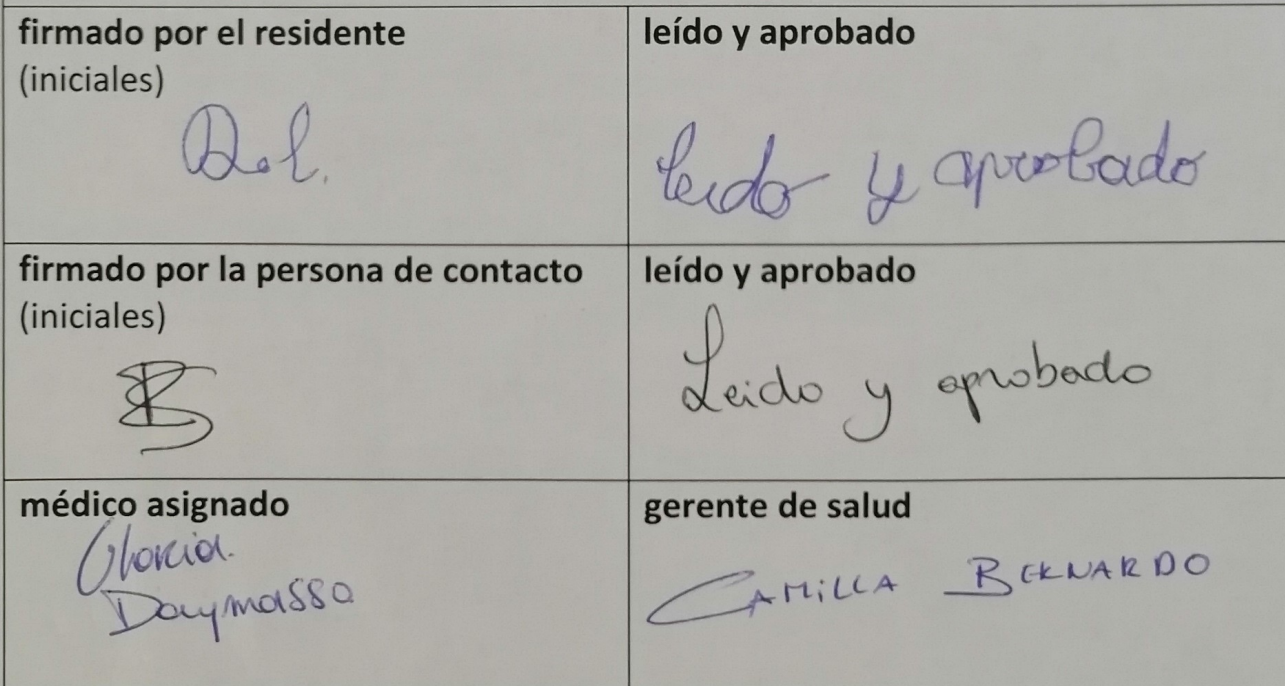 firmado por el residente
(iniciales)
leído y aprobado
leido y aprobado
firmado por la persona de contacto
(iniciales)
BS
leído y aprobado
Leido y aprobado
médico asignado
Gloria
Daymasso
gerente de salud
CAMiLLA BERNARDO